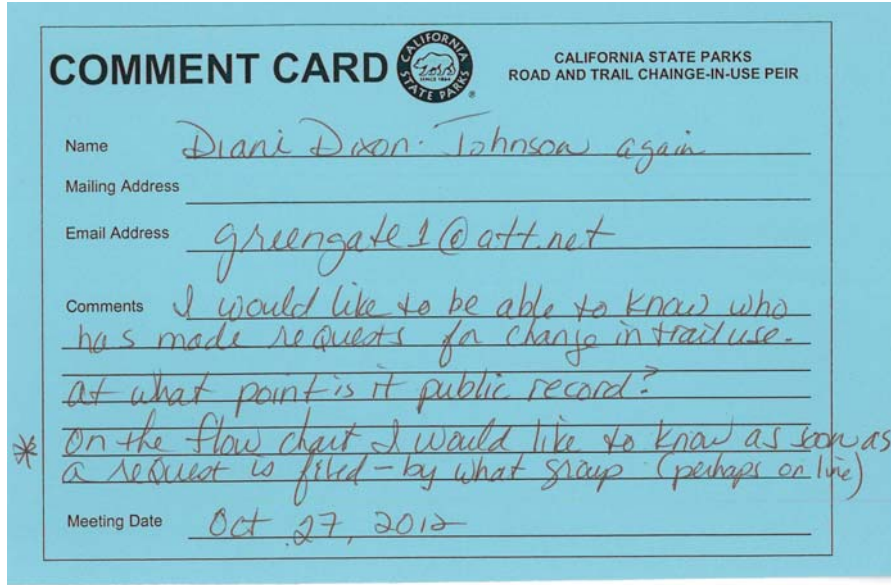 COMMENT CARD
CALIFORNIA
STATE PARKS
SINCE 1864
CALIFORNIA STATE PARKS
ROAD AND TRAIL CHAINGE-IN-USE PEIR
Name Diani Dixon-Johnson again
Mailing Address
Email Address greengate1@att.net
Comments I would like to be able to know who
has made requests for change in trail use.
at what point is it public record?
* On the flow chart I would like to know as soon as
a request is filed - by what group (perhaps on line)
Meeting Date Oct 27, 2012